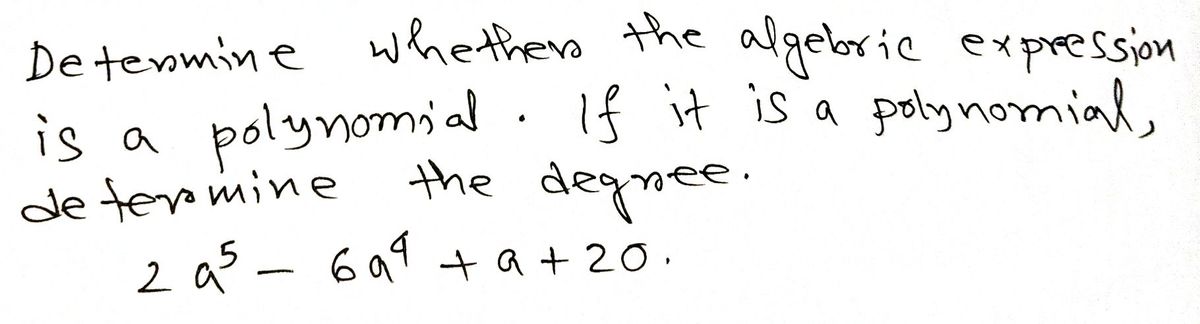 Determine whether the algebric expression
is a polynomial. If it is a polynomial,
determine the degree.
2a⁵ - 6a⁴ + a + 20.